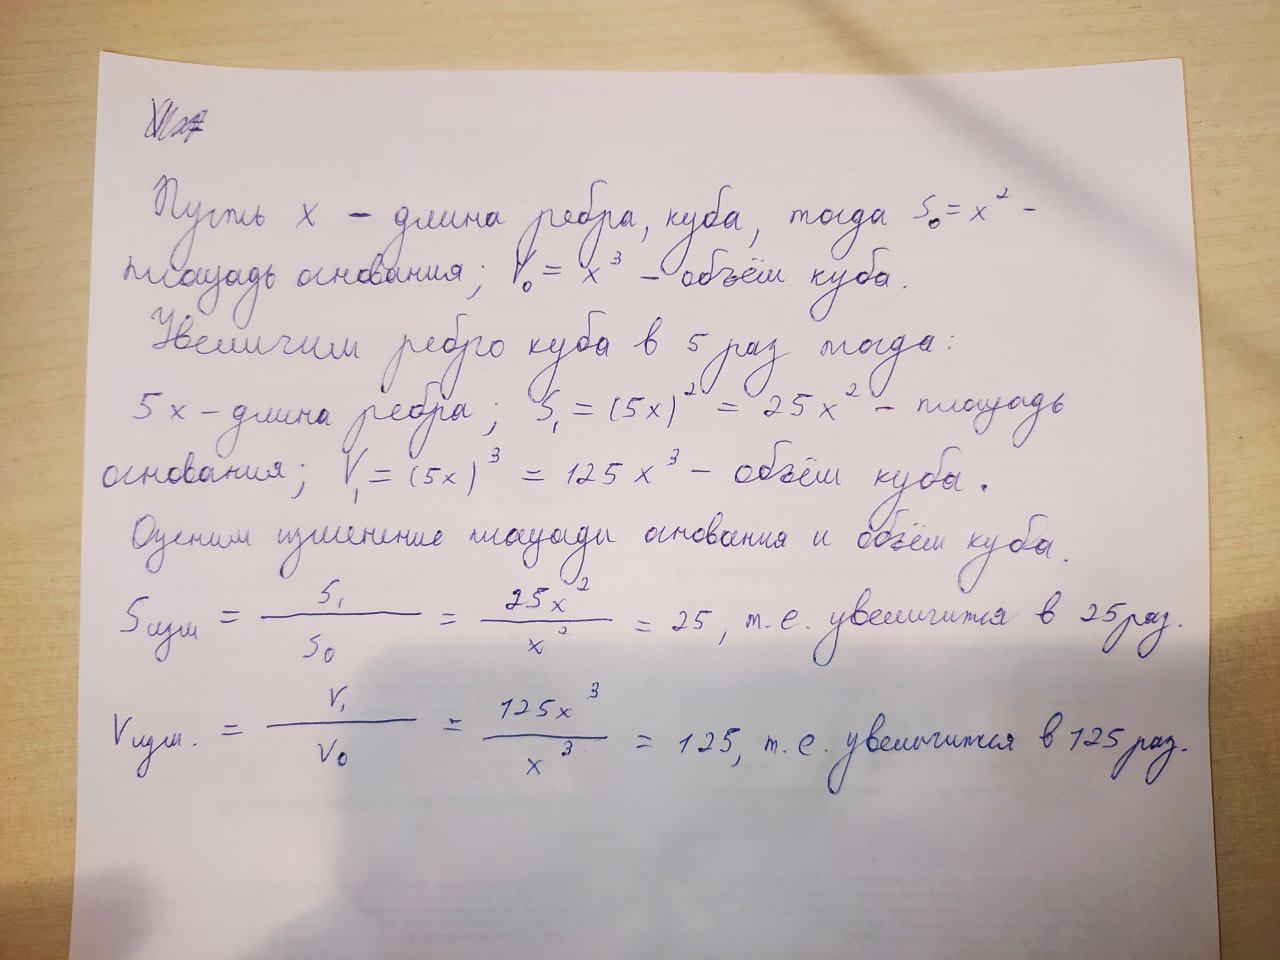 Пусть x – длина ребра, куба, тогда S₀ = x² –
площадь основания; V₀ = x³ – объём куба.
Увеличим ребро куба в 5 раз тогда:
5x – длина ребра; S₁ = (5x)² = 25x² – площадь
основания; V₁ = (5x)³ = 125x³ – объём куба.
Оценим изменение площади основания и объём куба.
Sизм = S₁/S₀ = 25x²/x² = 25, т.е. увеличится в 25 раз.
Vизм. = V₁/V₀ = 125x³/x³ = 125, т.е. увеличится в 125 раз.